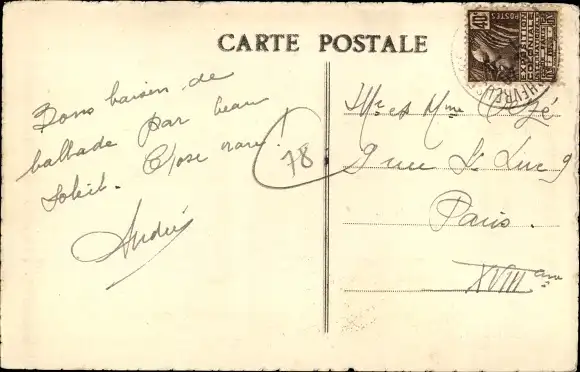 CARTE POSTALE
40c POSTES
EXPOSITION
COLONIALE
INTERNATIONALE
PARIS 1931
CHEVREUSE
Bons baisers de
ballade par beau
soleil. Chose rare!
André
78
Mr et Mme
9 rue St Luc 9
Paris.
XVIII ème